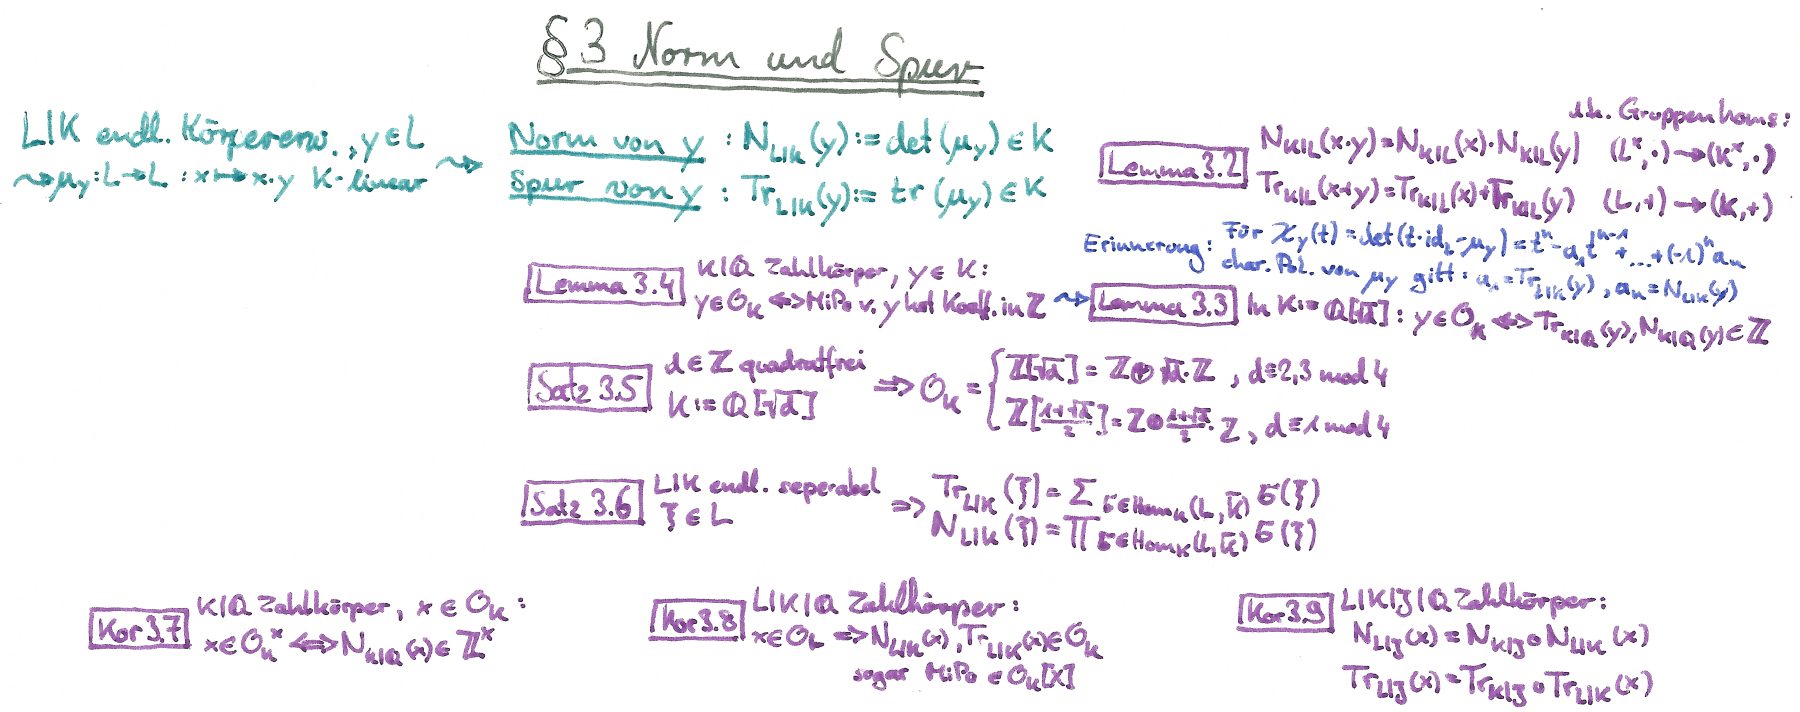 §3 Norm und Spur
L|K endl. Körpererw., y∈L
⇝ μ_y: L→L : x↦x·y K-linear
⇝
Norm von y : N_{L|K}(y) := det(μ_y) ∈ K
Spur von y : Tr_{L|K}(y) := tr(μ_y) ∈ K
d.h. Gruppenhoms:
Lemma 3.2
N_{K|L}(x·y) = N_{K|L}(x)·N_{K|L}(y) (L^×,·)→(K^×,·)
Tr_{K|L}(x+y) = Tr_{K|L}(x)+Tr_{K|L}(y) (L,+)→(K,+)
Erinnerung: Für χ_y(t) = det(t·id_L-μ_y) = t^n-a_1t^{n-1}+...+(-1)^n a_n
char. Pol. von μ_y gilt: a_1=Tr_{L|K}(y), a_n=N_{L|K}(y)
Lemma 3.4
K|Q Zahlkörper, y∈K:
y∈O_K ⇔ MiPo v. y hat Koeff. in ℤ
⇝ Lemma 3.3 In K:=ℚ[√d] : y∈O_K ⇔ Tr_{K|Q}(y), N_{K|Q}(y)∈ℤ
Satz 3.5
d∈ℤ quadratfrei
K:=ℚ[√d]
⇒ O_K = {
ℤ[√d] = ℤ⊕√d·ℤ , d≡2,3 mod 4
ℤ[(1+√d)/2] = ℤ⊕(1+√d)/2·ℤ , d≡1 mod 4
Satz 3.6
L|K endl. seperabel
ξ∈L
⇒ Tr_{L|K}(ξ) = Σ_{σ∈Hom_K(L,K̄)} σ(ξ)
N_{L|K}(ξ) = ∏_{σ∈Hom_K(L,K̄)} σ(ξ)
Kor 3.7
K|Q Zahlkörper, x∈O_K:
x∈O_K^× ⇔ N_{K|Q}(x)∈ℤ^×
Kor 3.8
L|K|Q Zahlkörper:
x∈O_L ⇒ N_{L|K}(x), Tr_{L|K}(x)∈O_K
sogar MiPo ∈ O_K[X]
Kor 3.9
L|K|J|Q Zahlkörper:
N_{L|J}(x) = N_{K|J}∘N_{L|K}(x)
Tr_{L|J}(x) = Tr_{K|J}∘Tr_{L|K}(x)